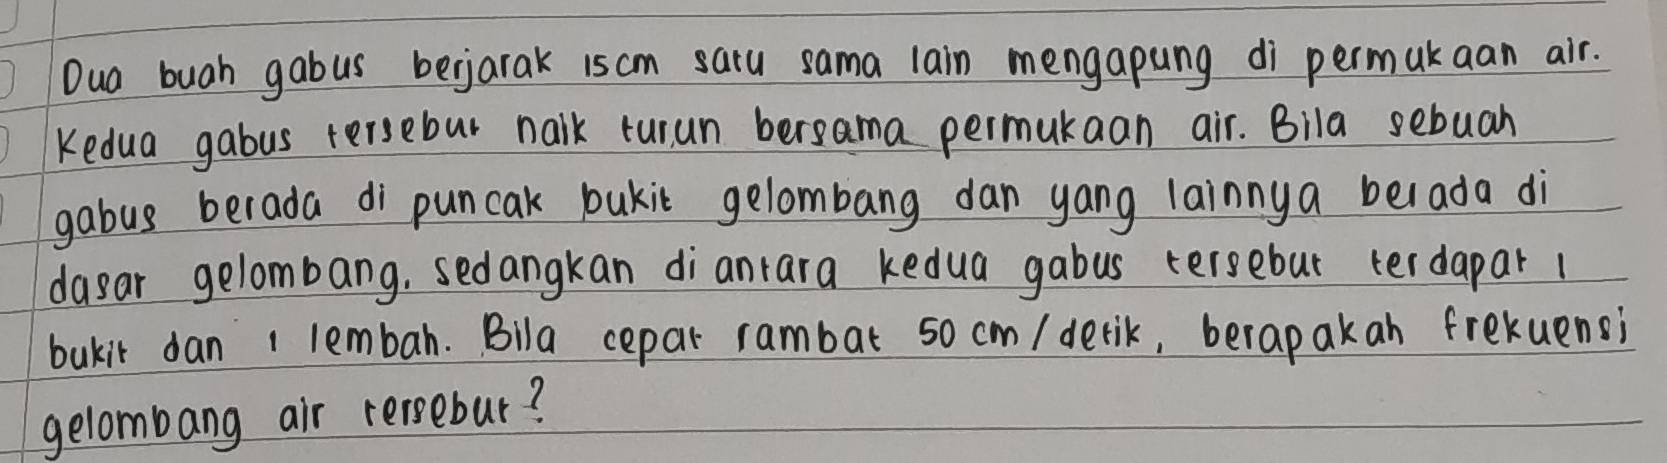 Dua buah gabus berjarak 15 cm satu sama lain mengapung di permukaan air.
Kedua gabus tersebut naik turun bersama permukaan air. Bila sebuah
gabus berada di puncak bukit gelombang dan yang lainnya berada di
dasar gelombang. sedangkan di antara kedua gabus tersebut terdapat 1
bukit dan 1 lembah. Bila cepat rambat 50 cm/detik, berapakah frekuensi
gelombang air tersebut?